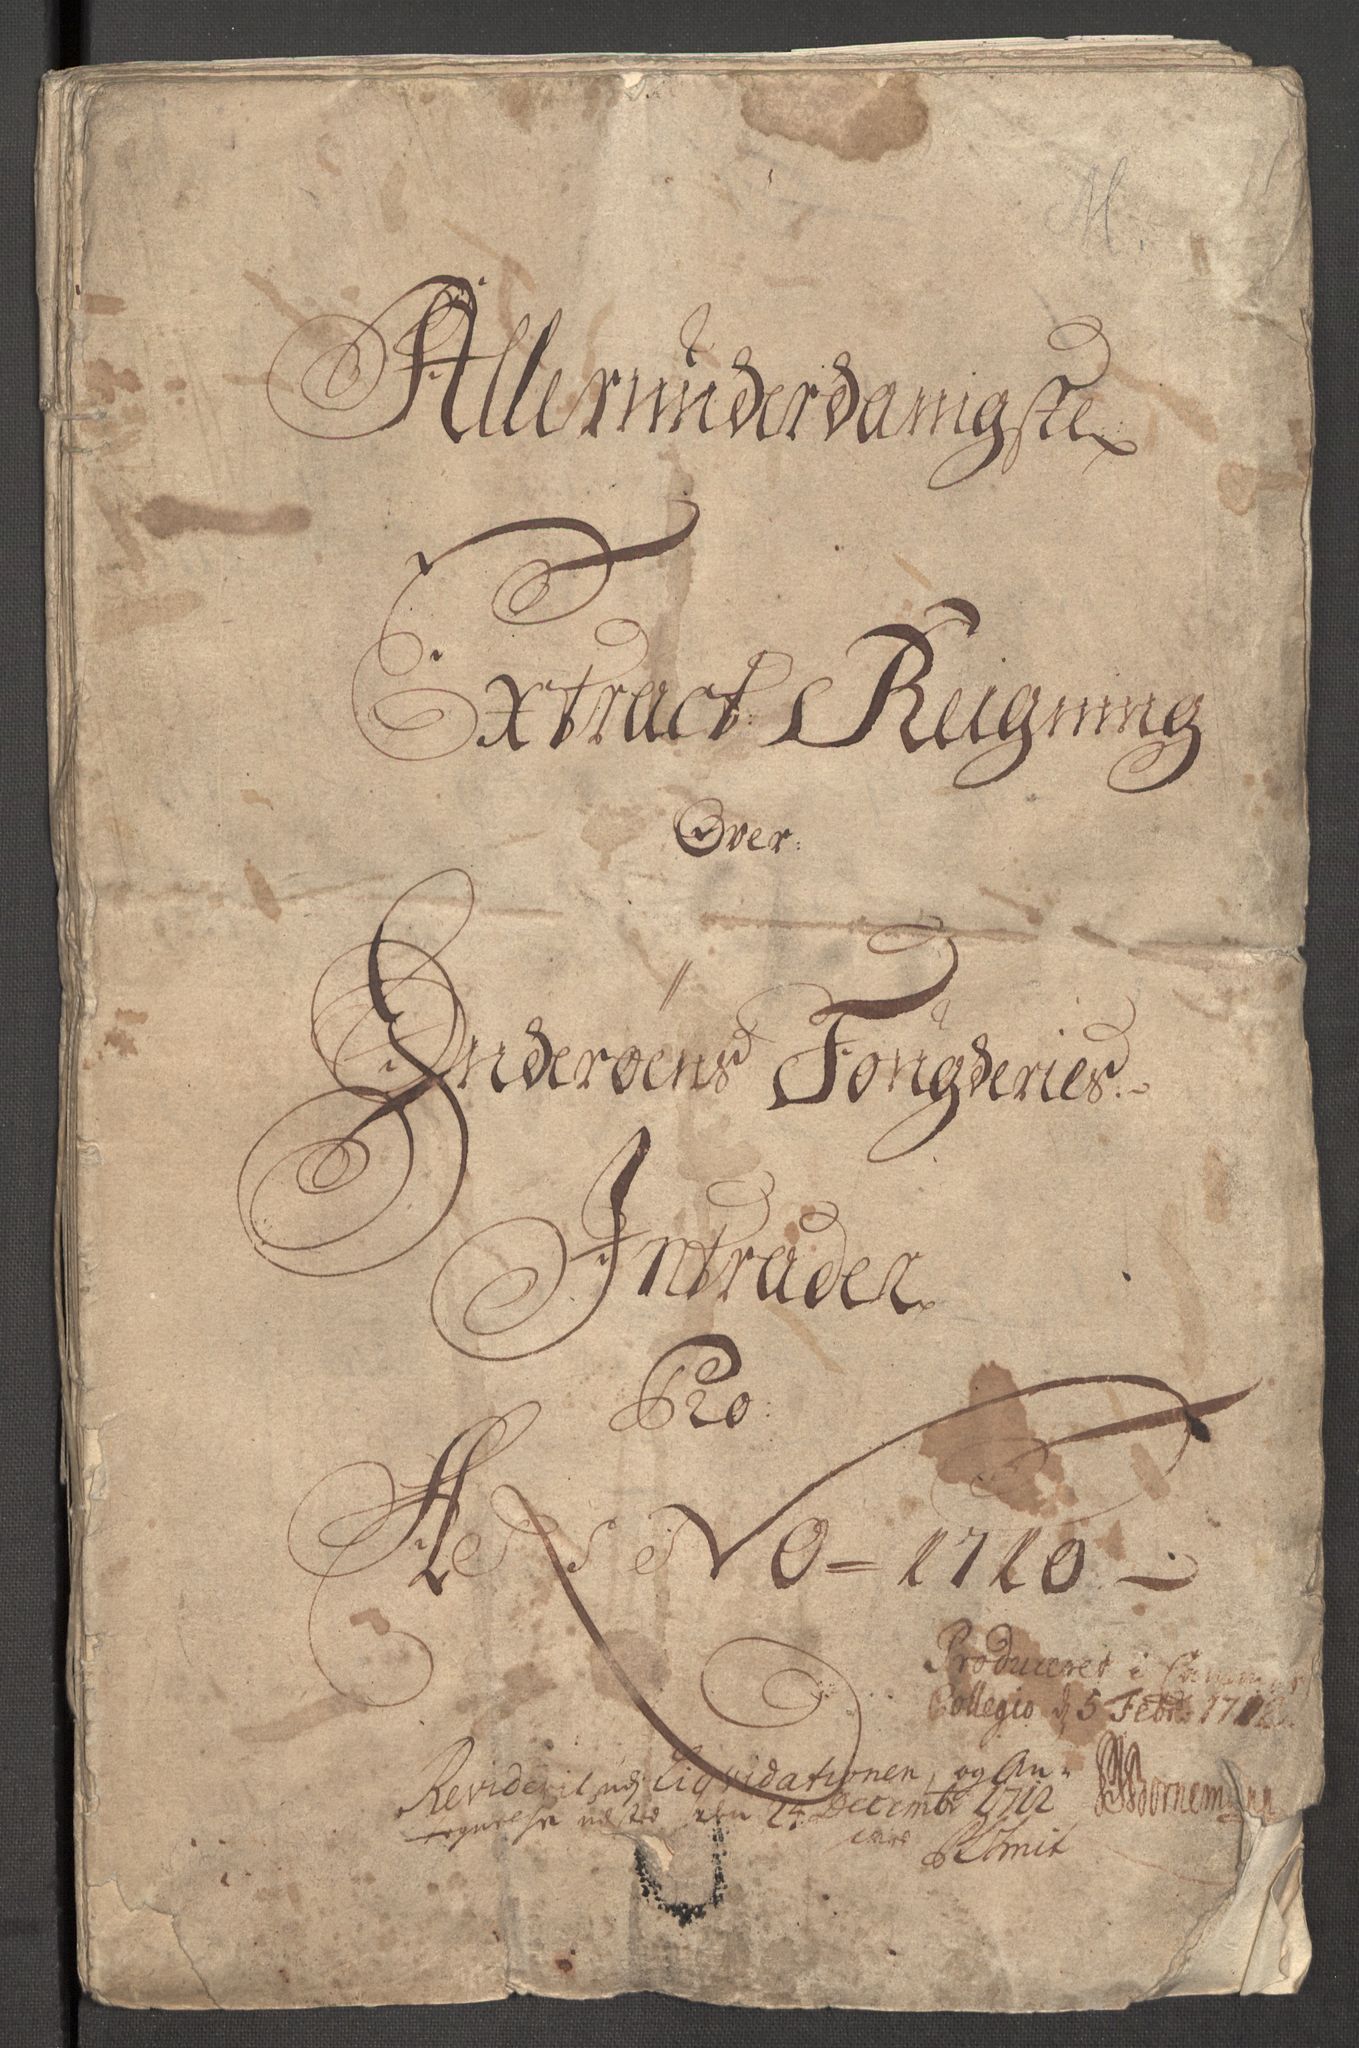 M.
Allerunderdanigste
Extract Reigning
Over
Inderøens Fougderies
Intrader
Pro
ANNO = 1710
Produceret i Cammer
Collegio d 5 Febr: 1712
Revideret, udj Liqvidationen, og An-
tegnelse udsted den 24 Decembr 1712
Bornemann
Smit